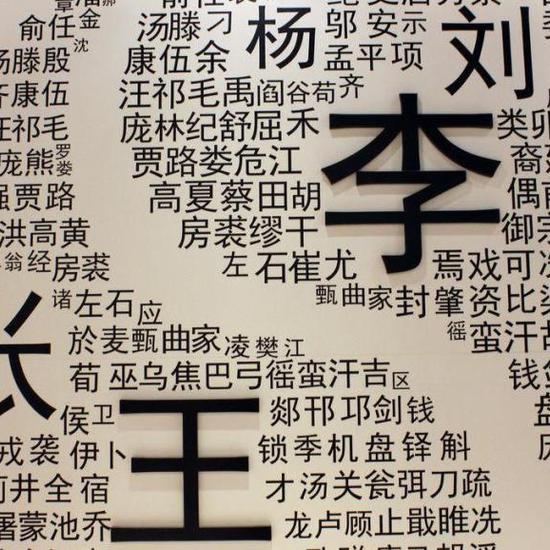 俞任金
汤滕刁
杨
邬安示
刘
沈
汤滕殷
康伍余
孟平项
齐康伍
汪祁毛禹阎谷荀齐
汪祁毛
庞林纪舒屈禾
李
类卯
庞熊罗娄
贾路娄危江
裔
强贾路
高夏蔡田胡
偶
洪高黄
房裘缪干
御宗
翁经房裘
左石崔尤
焉戏可
诸左石应
甄曲家封肇资比
於麦甄曲家凌樊江
徭蛮汗胡
张
荀巫乌焦巴弓徭蛮汗吉区
钱剑
侯卫
王
郯邗邛剑钱
盘
戎袭伊卜
锁季机盘铎斛
井全宿
才汤关瓮弭刀疏
屠蒙池乔
龙卢顾止戢睢冼